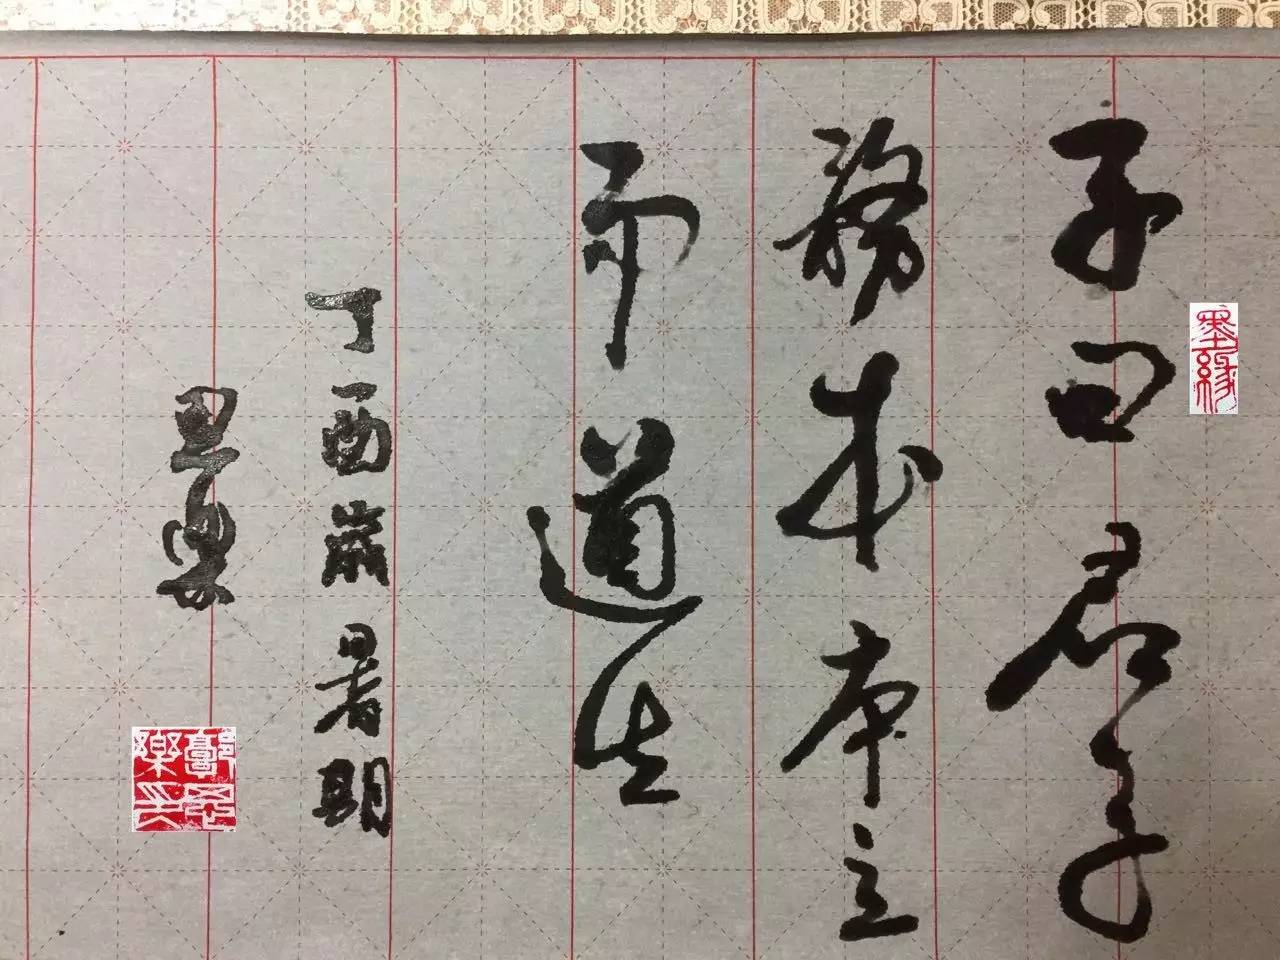 子曰君子
務本本立
而道生
丁酉歲暑期
思樂
墨緣